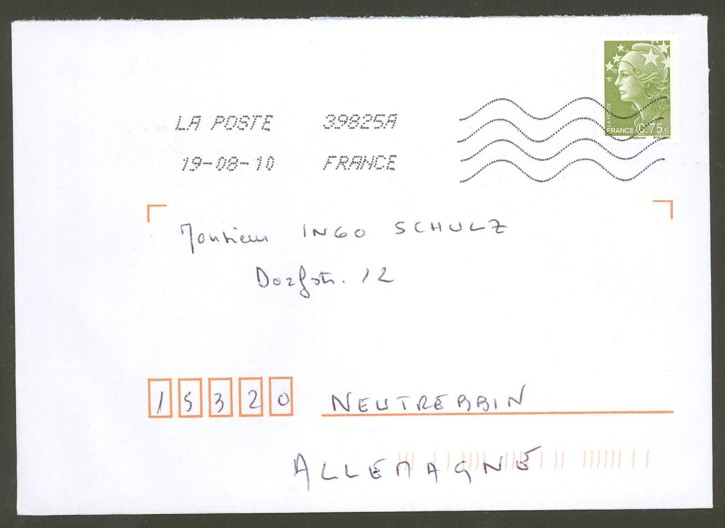 LA POSTE 39825A
19-08-10 FRANCE
FRANCE 0.75€
Monsieur INGO SCHULZ
Dorfstr. 12
15320 NEUTREBBIN
ALLEMAGNE